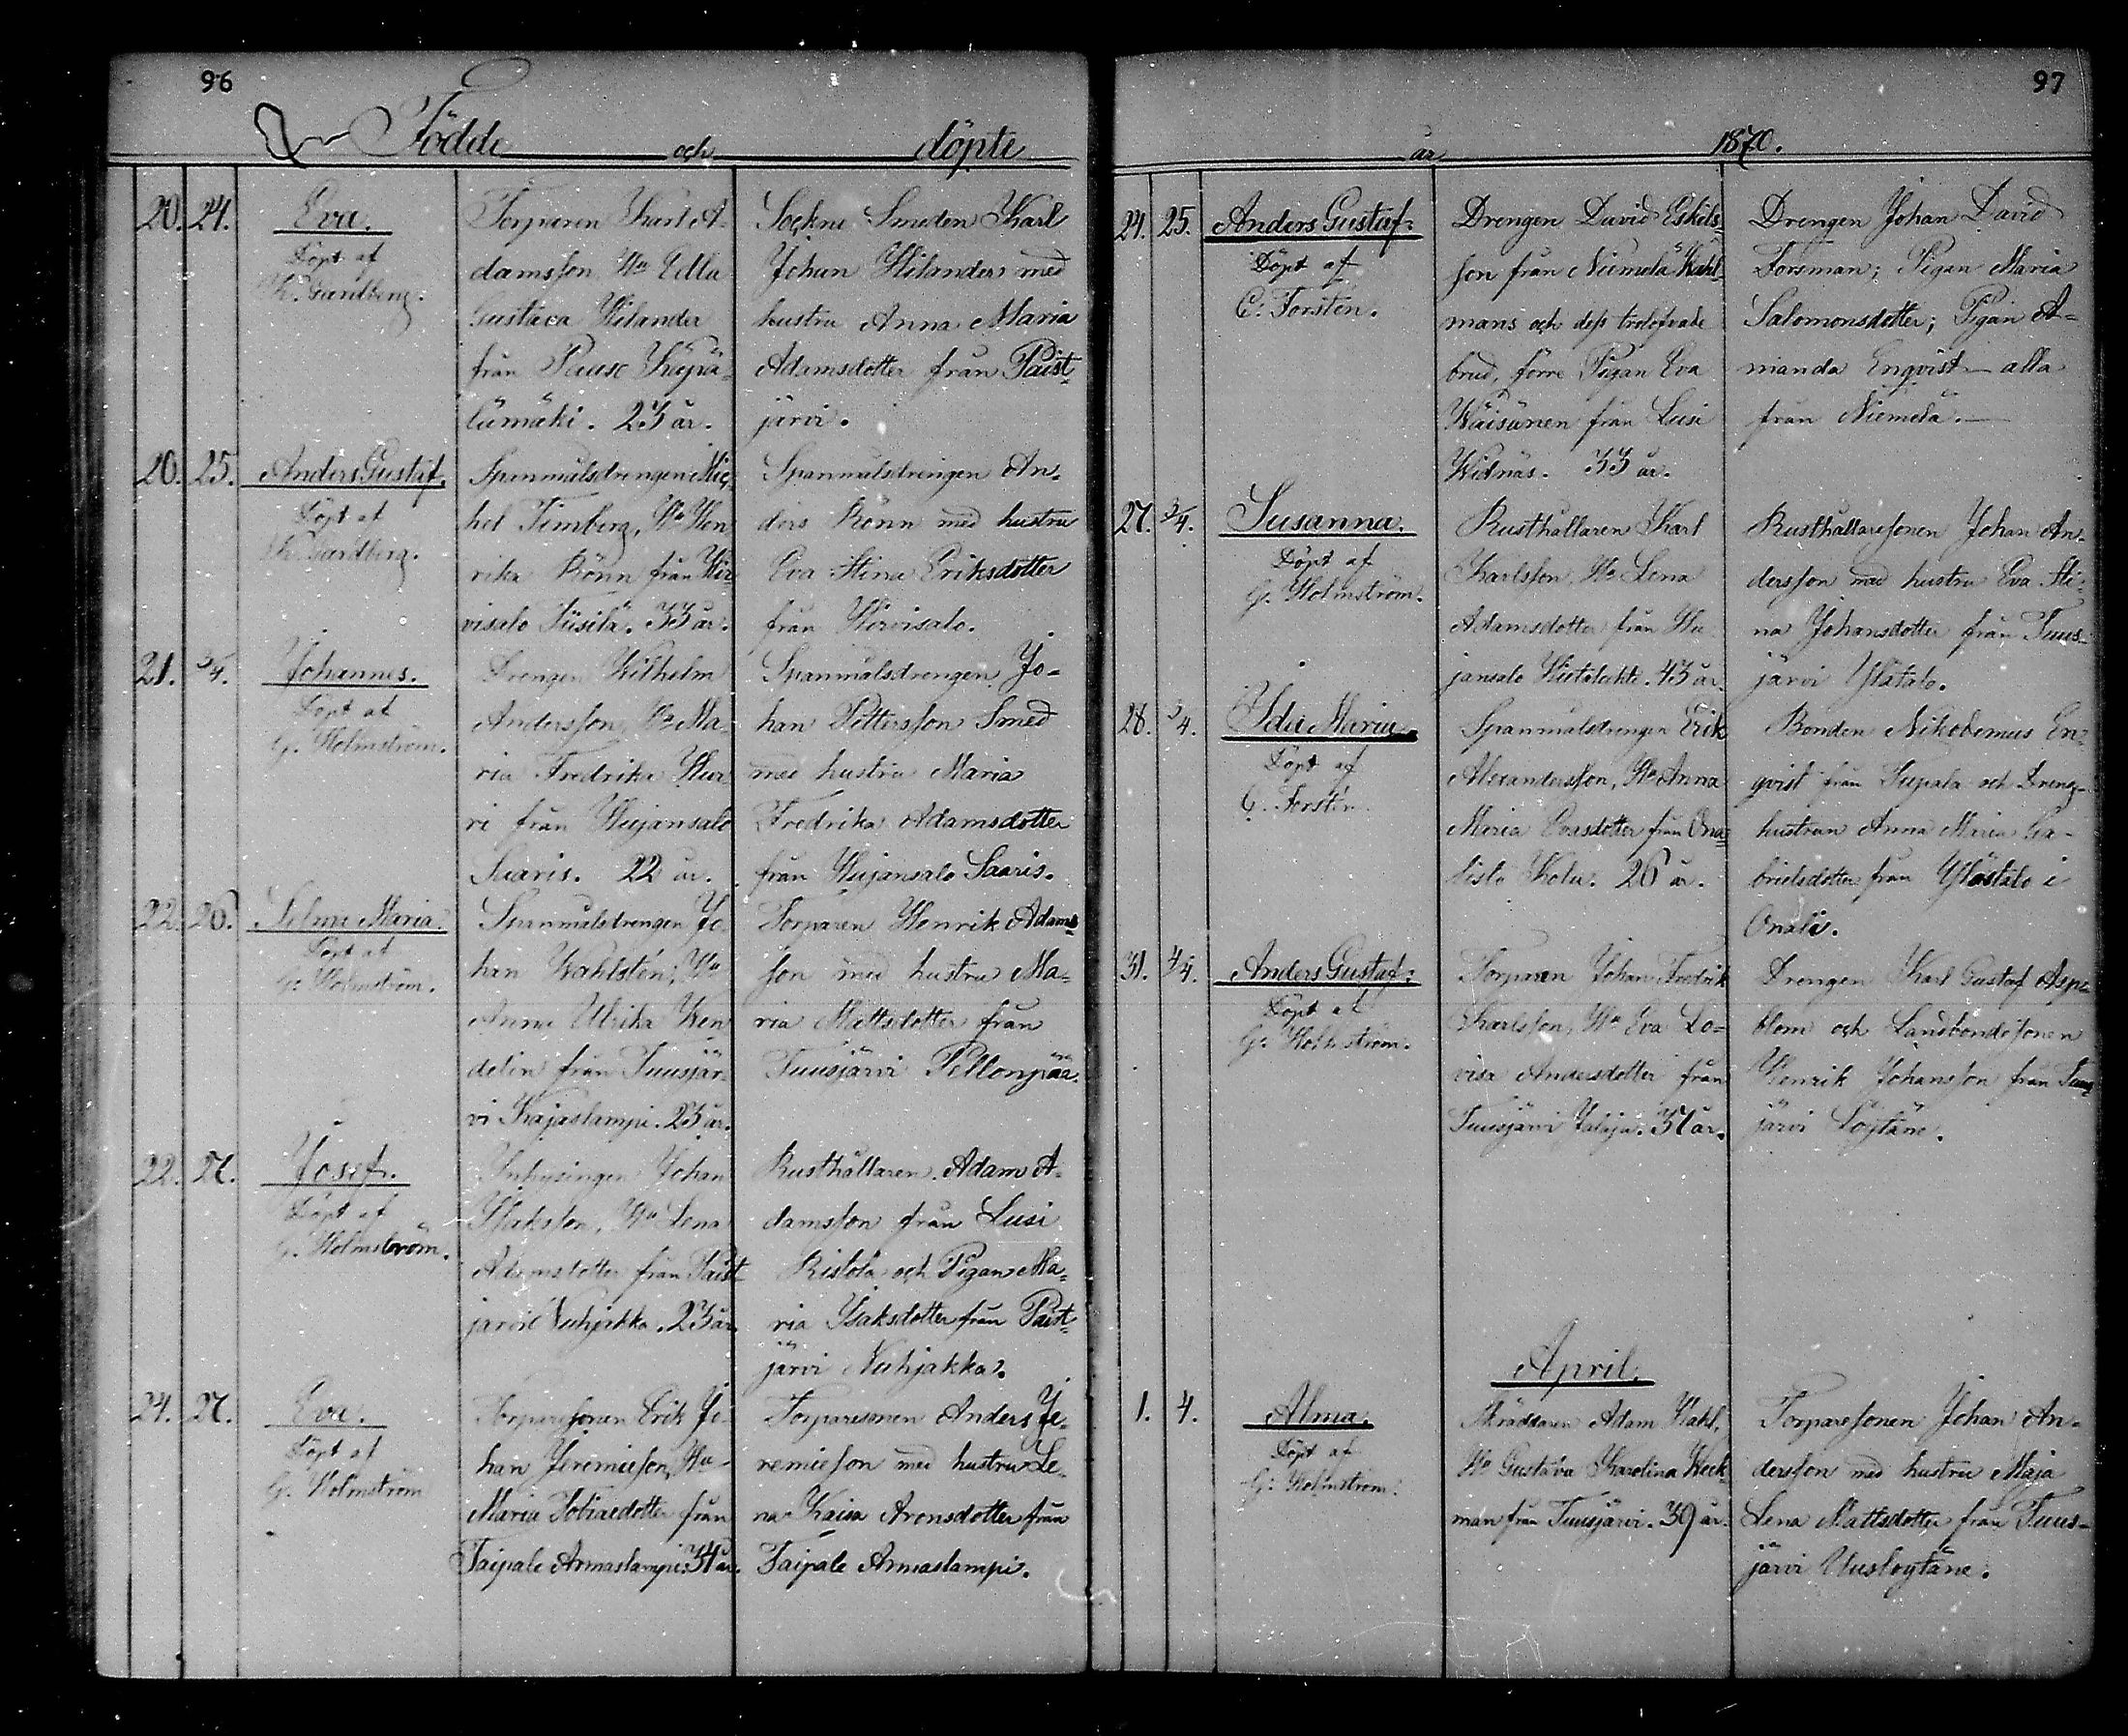 96
Födde och döpte
20. 24. Eva.
Döpt af
Torparen Karl A-
damsson, Hu Edla
Gustava Hilander
från Pauso Käpä-
lämäki. 23 år.
Sockne Smeden Karl
Johan Hilander med
hustru Anna Maria
Adamsdotter från Paist-
järvi.
20. 25. Anders Gustaf.
Döpt af
Spanmålsdrengen Mic-
hel Timberg, Hu Hen
rika Rönn från Hir
visalo Tüsilä. 33 år.
Spanmålsdrengen An-
ders Rönn med hustru
Eva Stina Eriksdotter
från Hirvisalo.
21. 3/4. Johannes.
Döpt af
G. Holmström.
Drengen Wilhelm
Andersson, Hu Ma-
ria Fredrika
ri från Hujansalo
Saaris. 22 år.
Spanmålsdrengen Jo-
han Pettersson Smed
med hustru Maria
Fredrika Adamsdotter
från Hujansalo Saaris.
22. 26. Selma Maria.
Döpt af
G. Holmström.
Spanmålsdrengen Jo
han Wahlstén, Hu
Anna Ulrika Wen
delin från Tuusjär-
vi Kajaslampi. 23 år.
Torparen Henrik Adams-
son med hustru Ma-
ria Mattsdotter från
Tuusjärvi Pellonpää.
22. 27. Josef.
Döpt af
G. Holmström.
Inhysingen Johan
Isaksson, Hu Lena
Adamsdotter från Paist
järvi Nuhjakka. 23 år.
Rusthållaren Adam A-
damsson från Lusi
Ristola och Pigan Ma-
ria Isaksdotter från Paist-
järvi Nuhjakka.
24. 27. Eva.
Döpt af
G. Holmström
Torparesonen Erik Jo-
han Jeremiesson, Hu
Maria Tobiaedotter från
Taipale Armaslampi. 34 år.
Torparesonen Anders Je-
remiesson med hustru Le-
na Kaisa Aronsdotter från
Taipale Armaslampi.
97
år 1870.
24. 25. Anders Gustaf.
Döpt af
C. Forstén.
Drengen David Eskils-
son från Niemelä Kahl-
mans och dess trolofvade
brud, förre Pigan Eva
Wäisänen från Lusi
Widnäs. 33 år.
Drengen Johan David
Forsman; Pigan Maria
Salomonsdotter; Pigan A-
manda Enqvist – alla
från Niemelä. –
27. 3/4. Susanna.
Döpt af
G. Holmström.
Rusthållaren Karl
Karlsson, Hu Lena
Adamsdotter från Hu
jansalo 43 år.
Rusthållaresonen Johan An-
dersson med hustru Eva Sti-
na Johansdotter från Tuus-
järvi Ylätalo.
28. 3/4. Ida Maria.
Döpt af
C. Forstén
Spanmålsdrengen Erik
Alexandersson, Hu Anna
Maria Evasdotter från Ona-
listo Kolu. 26 år.
Bonden Nikodemus En-
qvist från Supala och Dreng-
hustrun Anna Maria Ga-
brielsdotter från Yläståtalo i
Onali.
31. 4/4. Anders Gustaf.
Döpt af
G. Holmström.
Torparen Johan Fredrik
Karlsson, Hu Eva Lo-
visa Andersdotter från
Tuusjärvi Jalaja. 37 år.
Drengen Karl Gustaf Asp-
blom och Landbondesonen
Henrik Johansson från Tuus-
järvi Löytäne.
April.
1. 4. Alma.
Döpt af
G. Holmström.
Skräddaren Adam Wahl,
Hu Gustava Karolina Weck-
man från Tuusjärvi. 39 år.
Torparesonen Johan An-
dersson med hustru Maja
Lena Mattsdotter från Tuus-
järvi Uuslöytäne.